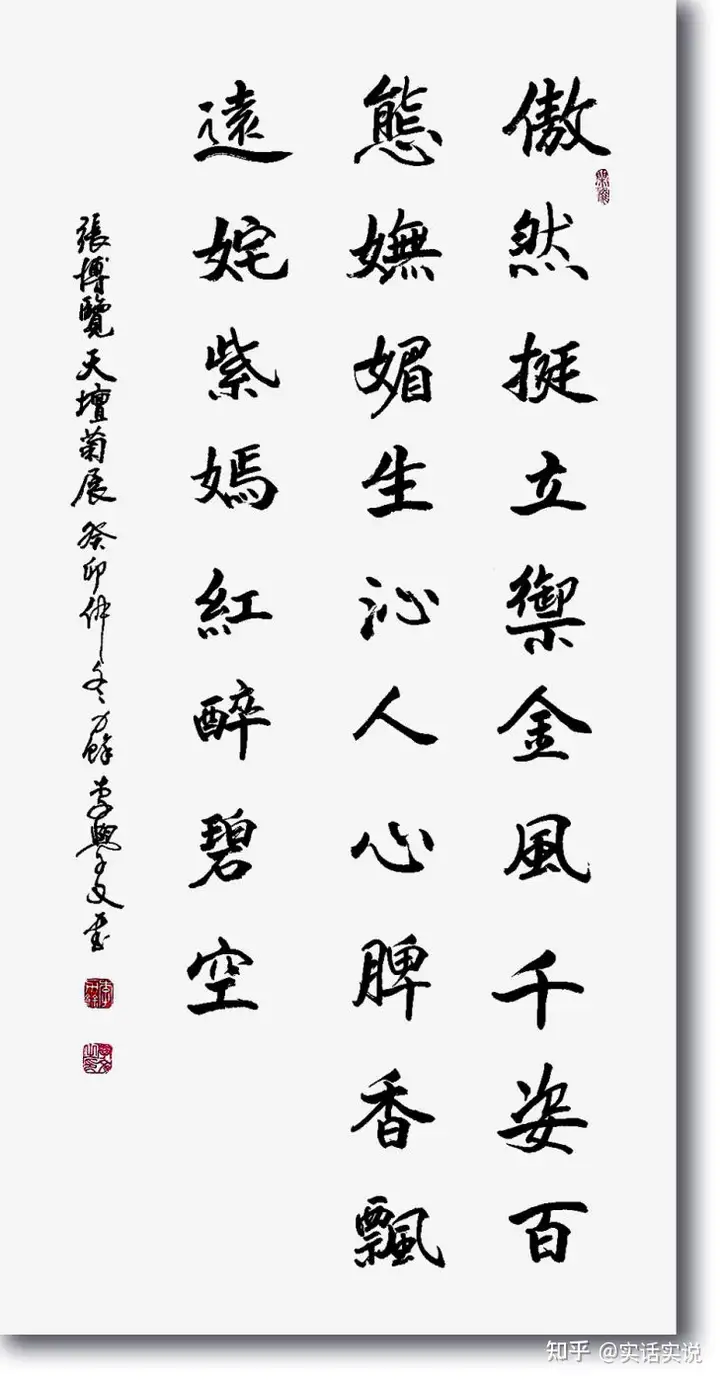 傲然挺立禦金風千姿百
態嫵媚生沁人心脾香飄
遠姹紫嫣紅醉碧空
張博覽天壇菊展癸卯仲冬方餘李興文書
知乎 @实话实说